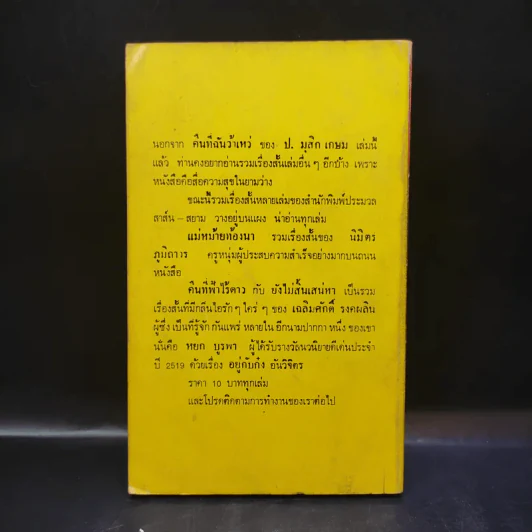 นอกจาก คืนที่ฉันว้าเหว่ ของ ป. มุสิกเกษม เล่มนี้
แล้ว ท่านคงอยากอ่านรวมเรื่องสั้นเล่มอื่น ๆ อีกบ้าง เพราะ
หนังสือคือสื่อความสุขในยามว่าง
ขณะนี้รวมเรื่องสั้นหลายเล่มของสำนักพิมพ์ประมวล
สาส์น – สยาม วางอยู่บนแผง น่าอ่านทุกเล่ม
แม่หม้ายท้องนา รวมเรื่องสั้นของ นิมิตร
ภูมิถาวร ครูหนุ่มผู้ประสบความสำเร็จอย่างมากบนถนน
หนังสือ
คืนที่ฟ้าไร้ดาว กับ ยังไม่สิ้นเสน่หา เป็นรวม
เรื่องสั้นที่มีกลิ่นไอรัก ๆ ใคร่ ๆ ของ เฉลิมศักดิ์ รงคผลิน
ผู้ซึ่งเป็นที่รู้จักกันแพร่หลายใน อีกนามปากกาหนึ่งของเขา
นั่นคือ หยก บูรพา ผู้ได้รับรางวัลนวนิยายดีเด่นประจำ
ปี 2519 ด้วยเรื่อง อยู่กับก๋ง อันวิจิตร
ราคา 10 บาททุกเล่ม
และโปรดติดตามการทำงานของเราต่อไป